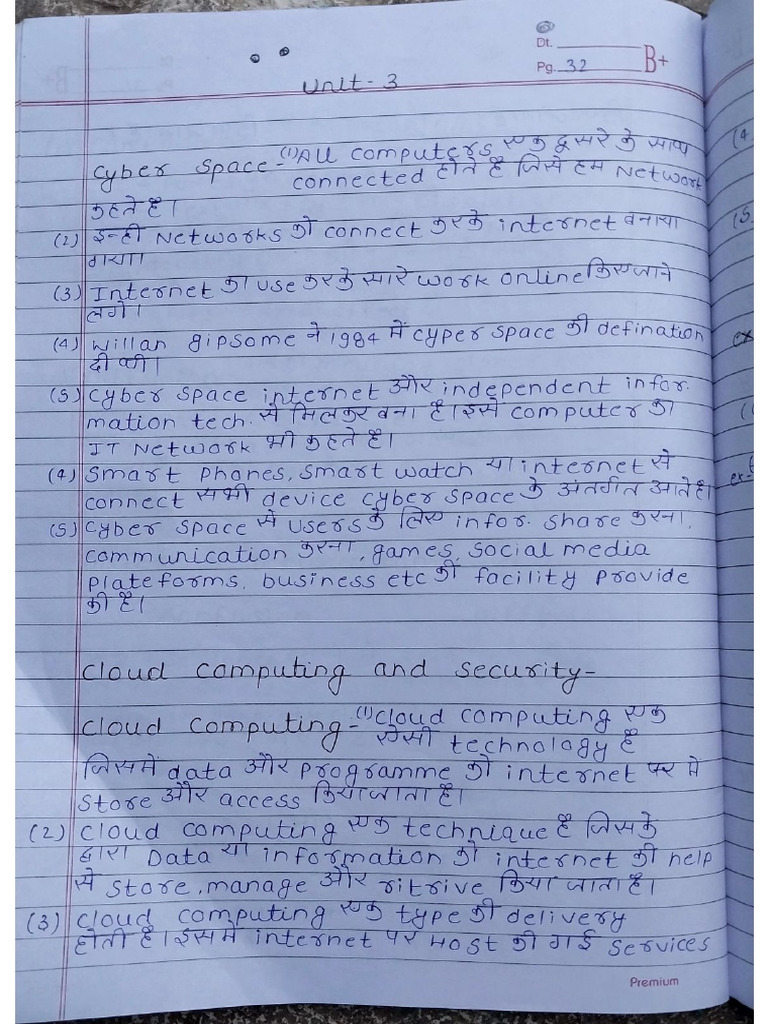 Dt.
Pg. 32 B+
Unit - 3
Cyber Space - (1) All computers एक दूसरे के साथ
connected होते है जिसे हम Network
कहते है।
(2) इन्ही Networks को connect करके internet बनाया
गया।
(3) Internet का use करके सारे work online किए जाने
लगे।
(4) Willan gipsome ने 1984 में cyper space की defination
दी थी।
(5) Cyber space internet और independent infor.
mation tech. से मिलकर बना है। इसे computer का
IT Network भी कहते है।
(4) Smart Phones, Smart watch या internet से
connect सभी device cyber space के अंतर्गत आते है।
(5) Cyber space से users के लिए infor. share करना,
communication करना, games, social media
plateforms, business etc की facility provide
की है।
Cloud computing and security-
Cloud computing - (1) Cloud computing एक
ऐसी technology है
जिसमे data और programme को internet पर मे
store और access किया जाता है।
(2) Cloud computing एक technique है जिसके
द्वारा Data या information को internet की help
से store, manage और ritrive किया जाता है।
(3) Cloud computing एक type की delivery
होती है। इसमे internet पर Host की गई services
Premium
(4.
(5.
ex
ex-